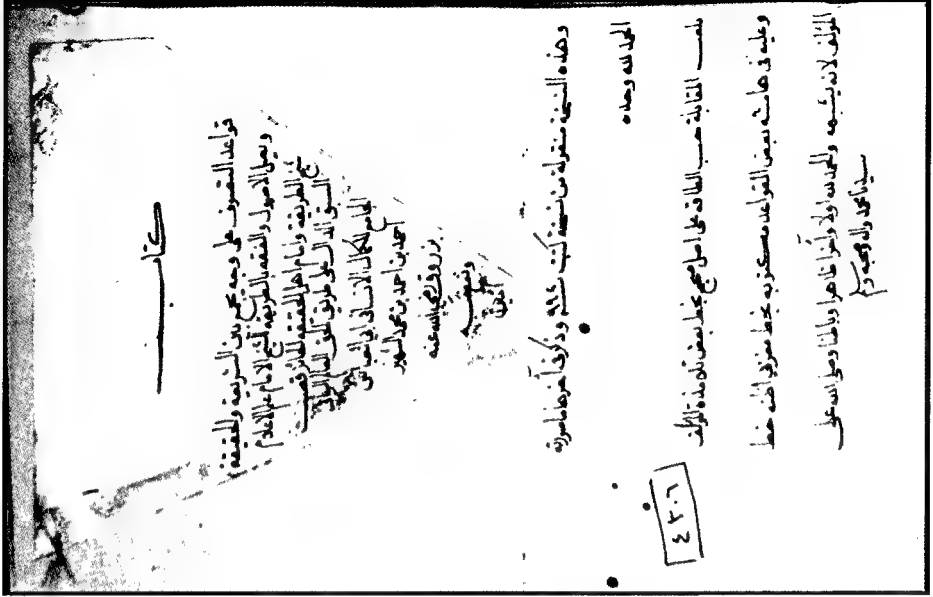 كتاب
قواعد التصوف على وجه يجمع بين الشريعة والحقيقة
ويصل الاصول والفقه بالطريقة للشيخ الامام علم الاعلام
شيخ الطريقة وامام اهل الحقيقة الحائز قصب
السبق الدال على طريق الحق العالم الرباني
الجامع للكمال الانساني ابي العباس
احمد بن احمد بن محمد الشهير
بزروق رضي الله عنه
ونفع به
آمين
وهذه النسخة منقولة من نسخة كتبت سنة ٩٩٤ وذكر في آخرها ما صورته
الحمد لله وحده
بلغت المقابلة حسب الطاقة على اصل صحيح بخط بعض تلامذة المؤلف
وعليه في هامشه بعض القواعد مكتوبة بخط مغربي اظنه خط
المؤلف لانه يشبهه والحمد لله اولا وآخرا ظاهرا وباطنا وصلى الله على
سيدنا محمد واله وصحبه وسلم
٤٢٠٦